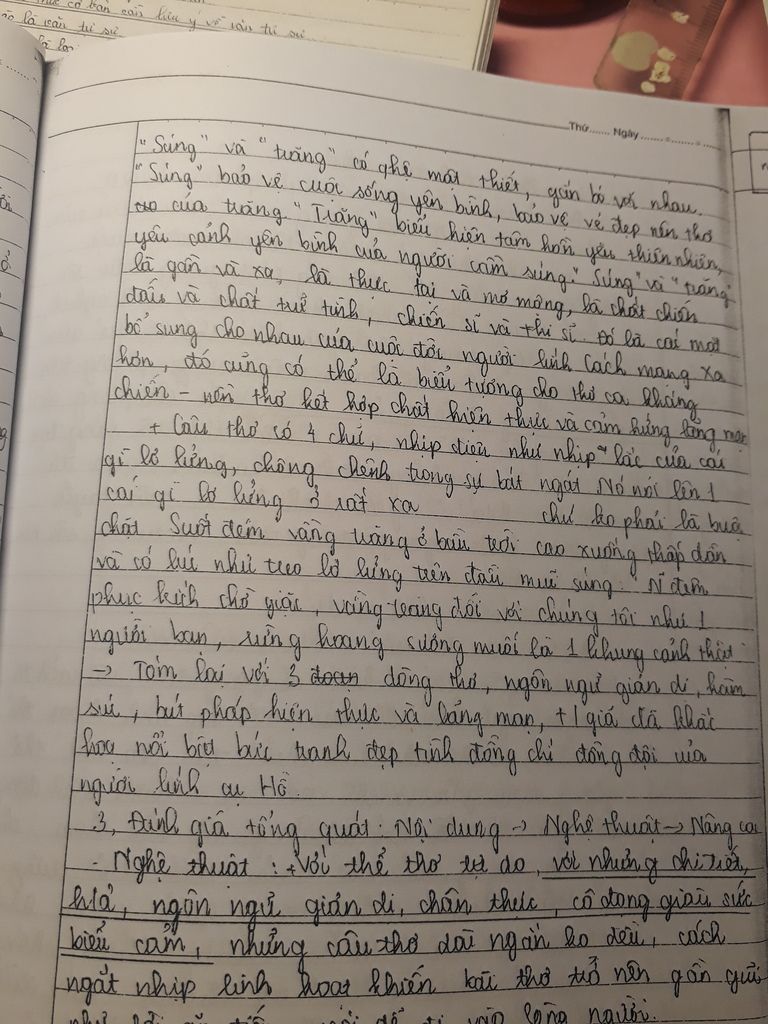 là văn tự sự
Thứ....... Ngày.............
"Súng" và "trăng" có ghệ mật thiết, gắn bó với nhau.
"Súng" bảo vệ cuộc sống yên bình, bảo vệ vẻ đẹp nên thơ
của trăng "Trăng" biểu hiện tâm hồn yêu thiên nhiên,
yêu cảnh yên bình của người cầm súng. "Súng" và "trăng"
là gần và xa, là thực tại và mơ mộng, là chất chiến
đấu và chất trữ tình, chiến sĩ và thi sĩ. Đó là các mặt
bổ sung cho nhau của cuộc đời người lính Cách mạng xa
hơn, đó cũng có thể là biểu tượng cho thơ ca kháng
chiến - nền thơ kết hợp chất hiện thực và cảm hứng lãng mạn
+ Câu thơ có 4 chữ, nhịp điệu như nhịp lắc của cái
gì lơ lửng, chông chênh trong sự bát ngát Nó nói lên 1
cái gì lơ lửng ở rất xa chứ ko phải là buộc
chặt Suốt đêm vầng trăng ở bầu trời cao xuống thấp dần
và có lúc như treo lơ lửng trên đầu mũi súng. N đêm
phục kích chờ giặc, vầng trăng đối với chúng tôi như 1
người bạn, rừng hoang sương muối là 1 khung cảnh thật
→ Tóm lại với 3 dòng thơ, ngôn ngữ giản dị, hàm
súc, bút pháp hiện thực và lãng mạn, t/giả đã khắc
họa nổi bật bức tranh đẹp tình đồng chí đồng đội của
người lính cụ Hồ.
3, Đánh giá tổng quát: Nội dung → Nghệ thuật → Nâng cao
- Nghệ thuật: + Với thể thơ tự do, với những chi tiết,
h/ả, ngôn ngữ giản dị, chân thực, cô đọng giàu sức
biểu cảm, những câu thơ dài ngắn ko đều, cách
ngắt nhịp linh hoạt khiến bài thơ trở nên gần gũi
như lời để đi vào lòng người.